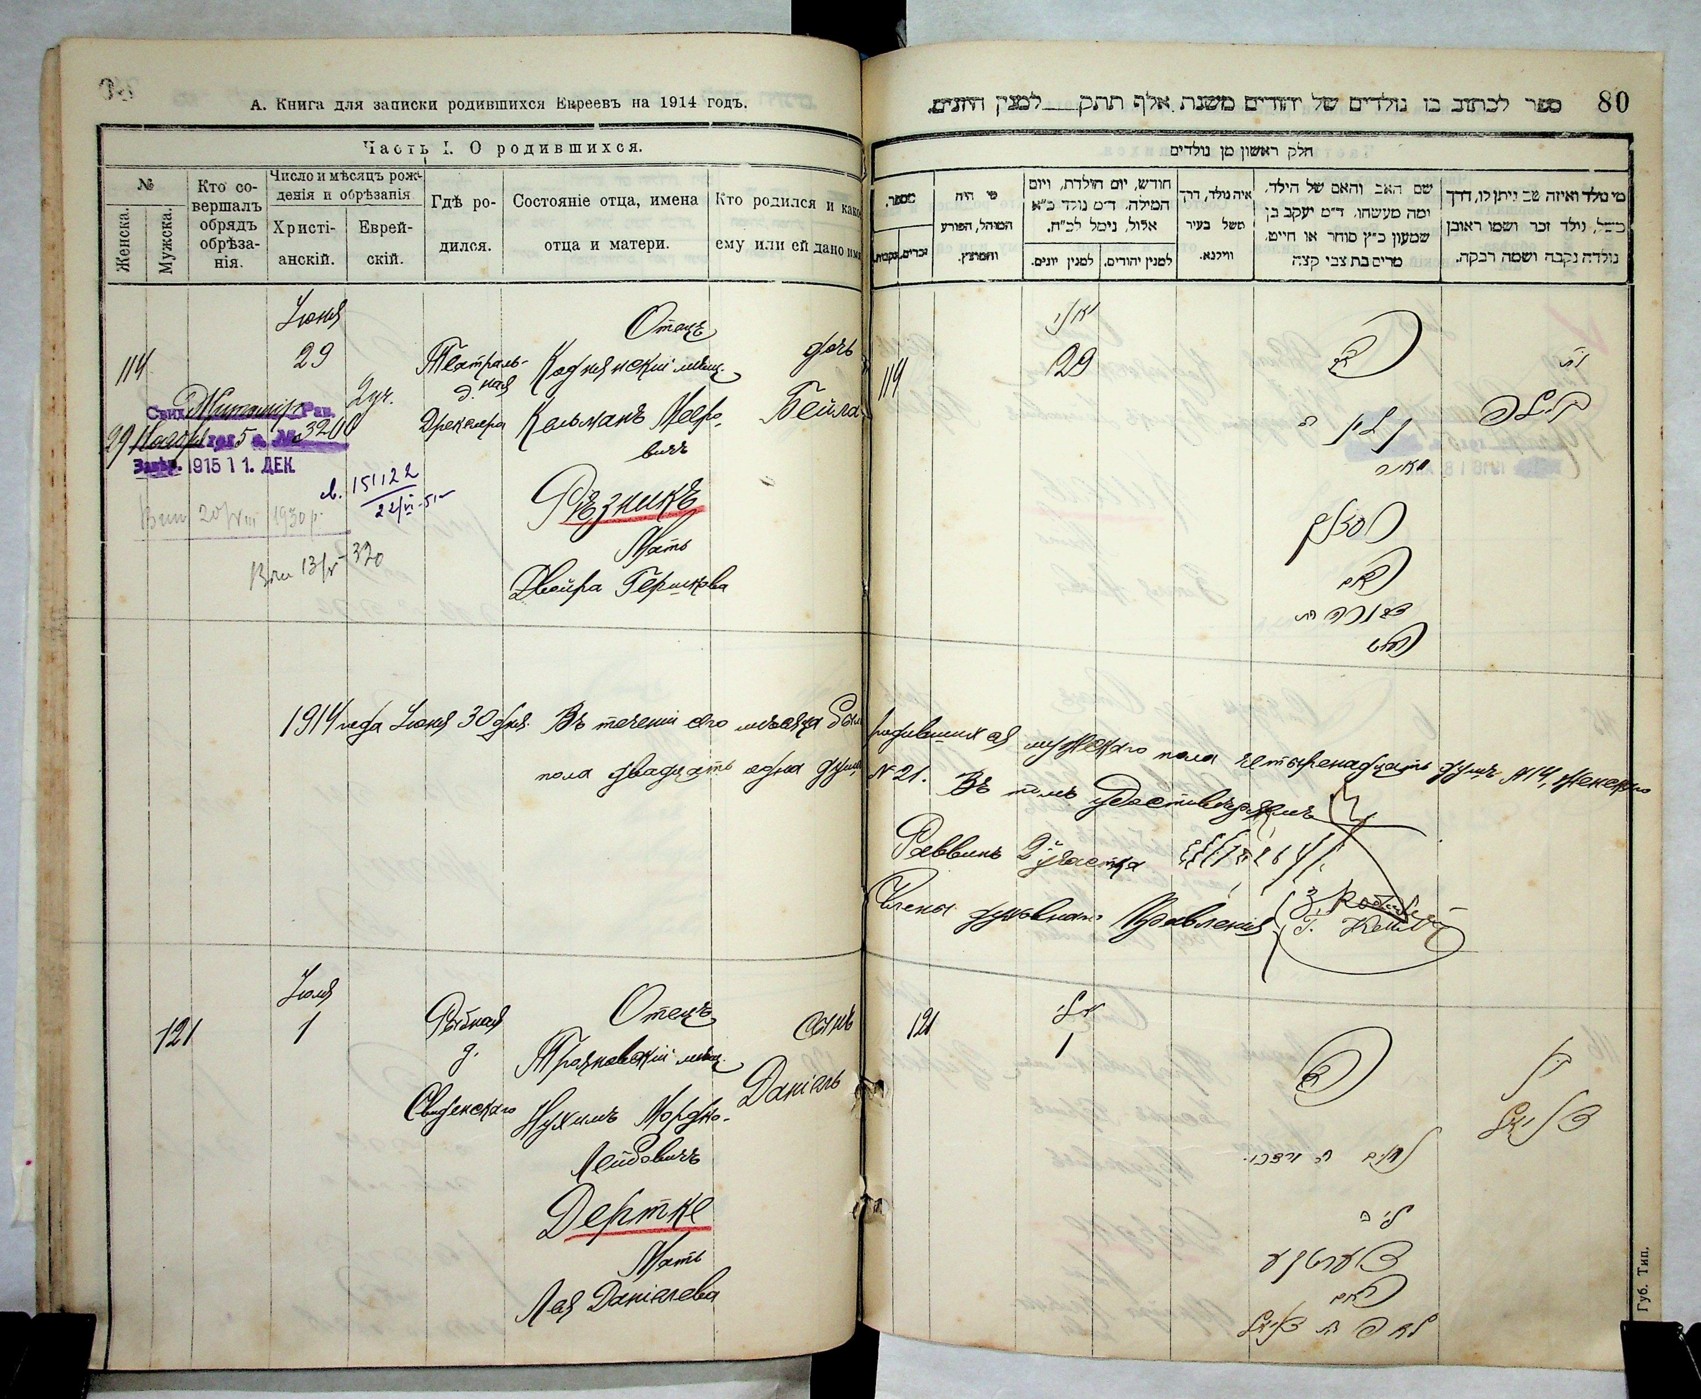 А. Книга для записки родившихся Евреевъ на 1914 годъ.
Часть I. О родившихся.
№
Женска.
Мужска.
Кто совершалъ обрядъ обрѣзанія.
Число и мѣсяцъ рожденія и обрѣзанія
Христіанскій.
Еврейскій.
Гдѣ родился.
Состояніе отца, имена отца и матери.
Кто родился и какое ему или ей дано имя
Іюня
Отецъ
дочь
114
29
Театральная
Кодненскій мѣщ.
д.
Дрекслера
Кельманъ Меерович
Бейла
2 уч.
Рав.
№ 3200
1915 11. ДЕК.
151122
22/VI-51
Рѣзникъ
20/VIII 1930 р.
13/V-320
Мать
Двейра Гершкова
1914 года Іюня 30 дня. Въ теченіи сего мѣсяца было
пола двадцать одна душа
Іюля
121
1
Рыбная
Отецъ
сынъ
д.
мѣщ.
Даніель
Нухимъ Мордко-
Лейбовичъ
Дертке
Мать
Лея Даніелева
ספר לכתוב בו נולדים של יהודים משנת אלף תתק למנין היונים
80
חלק ראשון מן נולדים
מספר.
זכרים.
נקבות.
מי היה המוהל, הפורע והמוצץ.
חודש, יום הולדת, ויום
המילה. ד״מ נולד כ״א
אלול, נימל לכ״ח.
למנין יונים.
למנין יהודים.
איה נולד, דרך משל בעיר ווילנא.
שם האב והאם של הילד,
ומה מעשהו. ד״מ יעקב בן
שמעון כ״ץ סוחר או חייט.
מרים בת צבי קצה
מי נולד ואיזה שם ניתן לו, דרך
משל, נולד זכר ושמו ראובן
נולדה נקבה ושמה רבקה.
יוני
114
29
האב
בת
ביילה
קלמן ב
מאיר
רעזניק
האם
דבורה בת
הירש
родившихся мужскаго пола четырнадцать душъ №14, женскаго
№ 21. Въ томъ удостовѣряемъ
Раввинъ 2 участка
Члены духовнаго Правленія
יולי
121
1
האב
בן
דניאל
נחום ב מרדכי
ליב
דערטקע
האם
לאה בת דניאל
Губ. Тип.